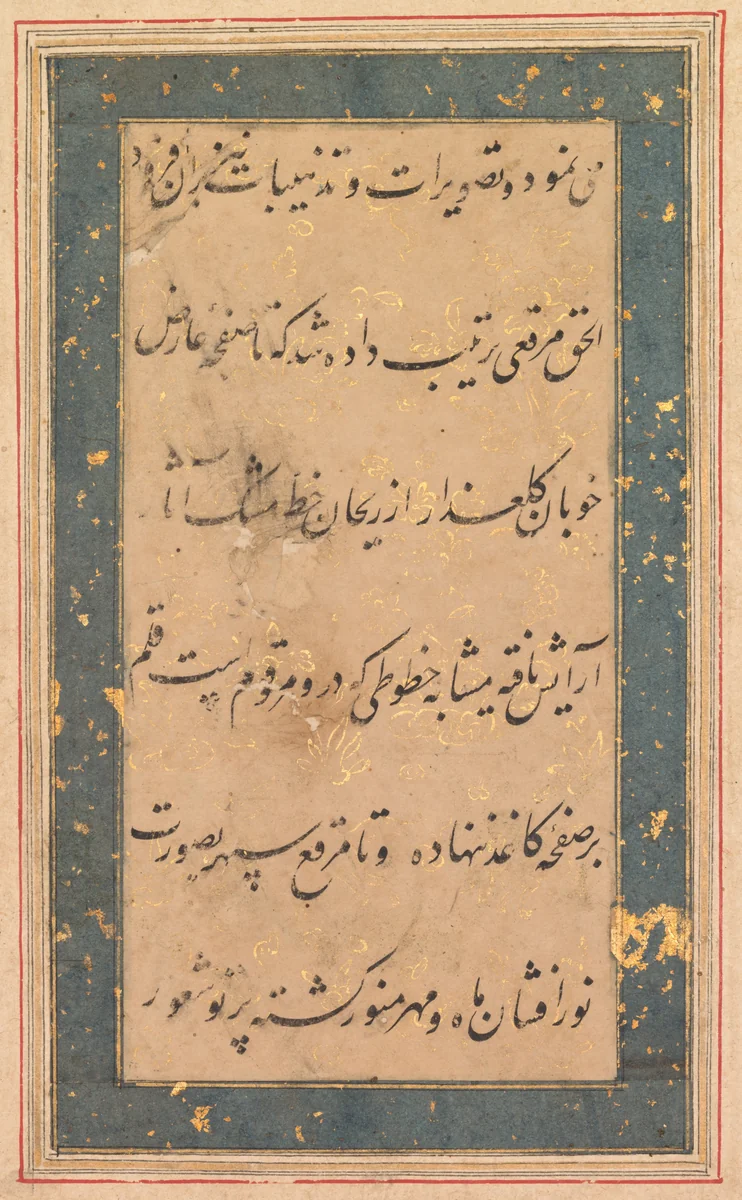 می نمود و تصویرات و تذهیبات نیز بران افزود
الحق مرقعی ترتیب داده شد که تا صفحهٔ عارض
خوبان گلعذار از ریحان خط مشک آثار
آرایش یافته مشابه خطوطی که درو مرقوم است قلم
بر صفحهٔ کاغذ ننهاده و تا مرقع سپهر بصورت
نورافشان ماه و مهر منور گشته پرتو شعور